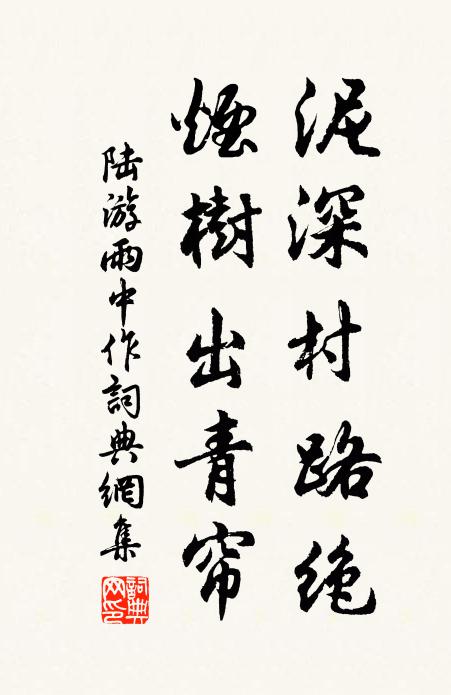 泥深村路绝
煙樹出青帘
陆游雨中作詞典網集
詞典网印